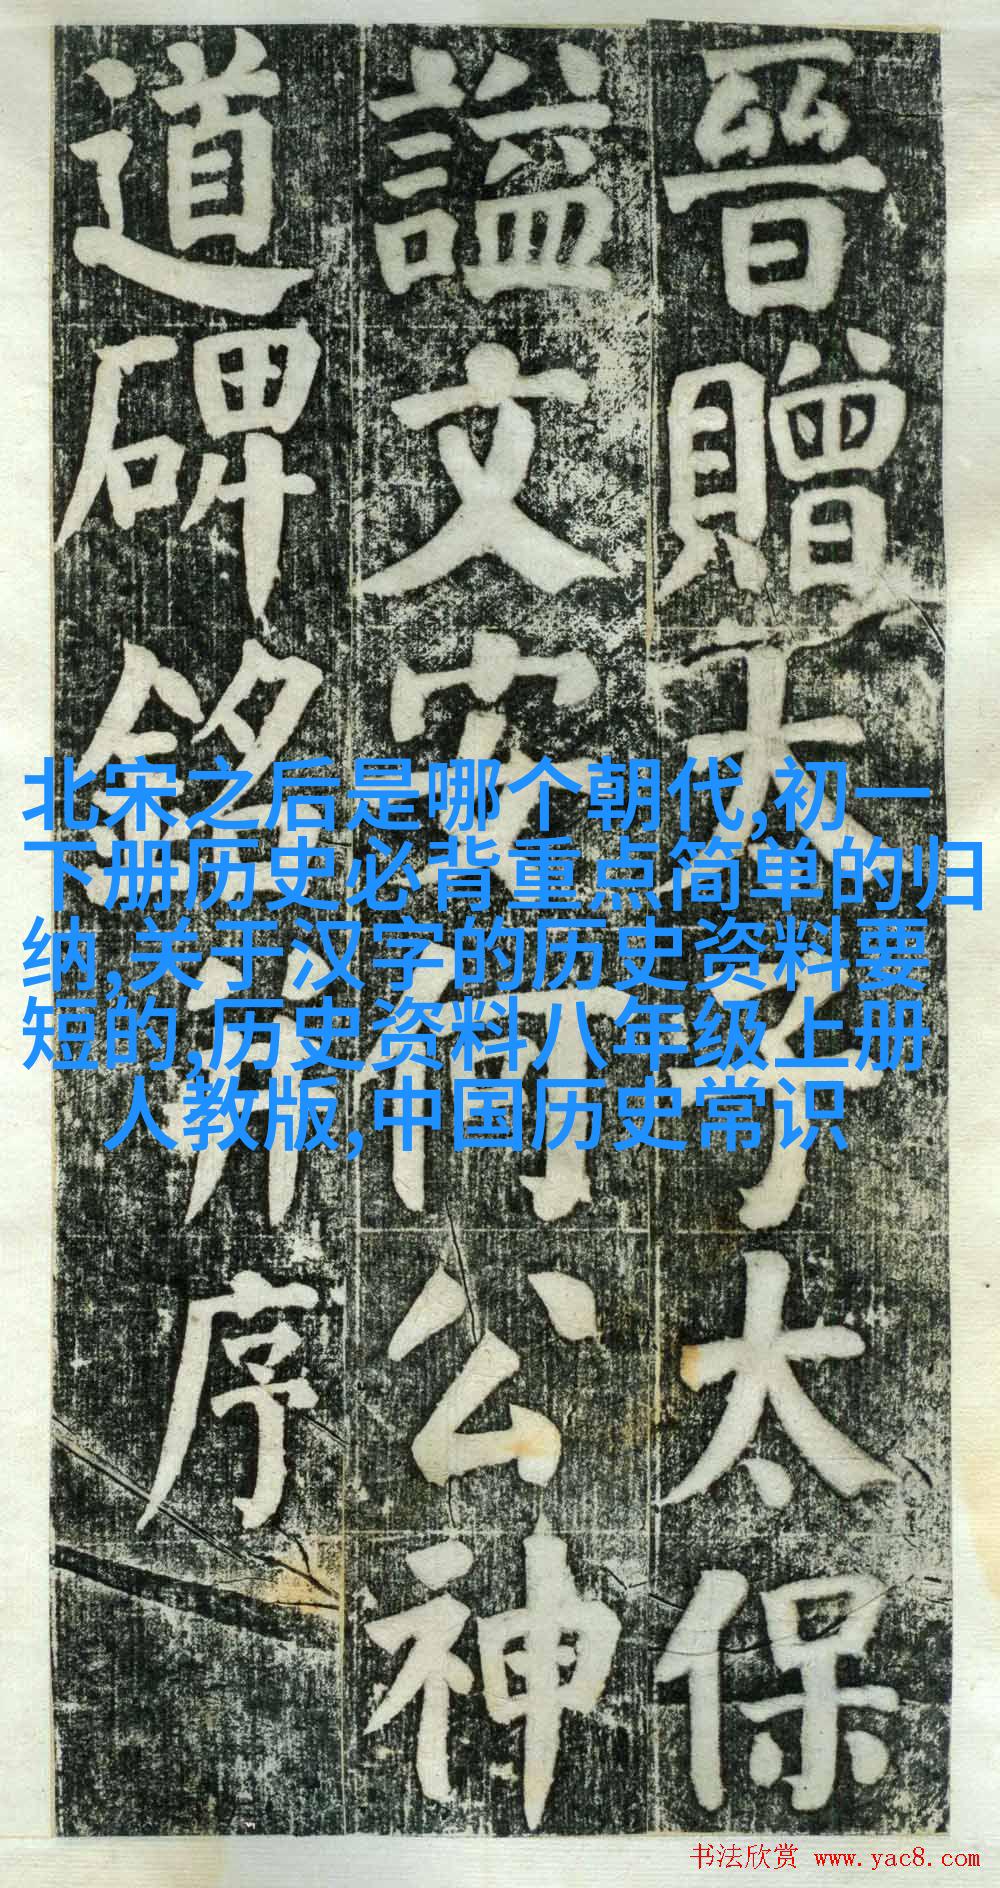 晉贈太子太保
謚文安何公神
道碑銘并序
北宋之后是哪个朝代,初一
下册历史必背重点简单的归
纳,关于汉字的历史资料要
短的,历史资料八年级上册
人教版,中国历史常识
书法欣赏 www.yac8.com